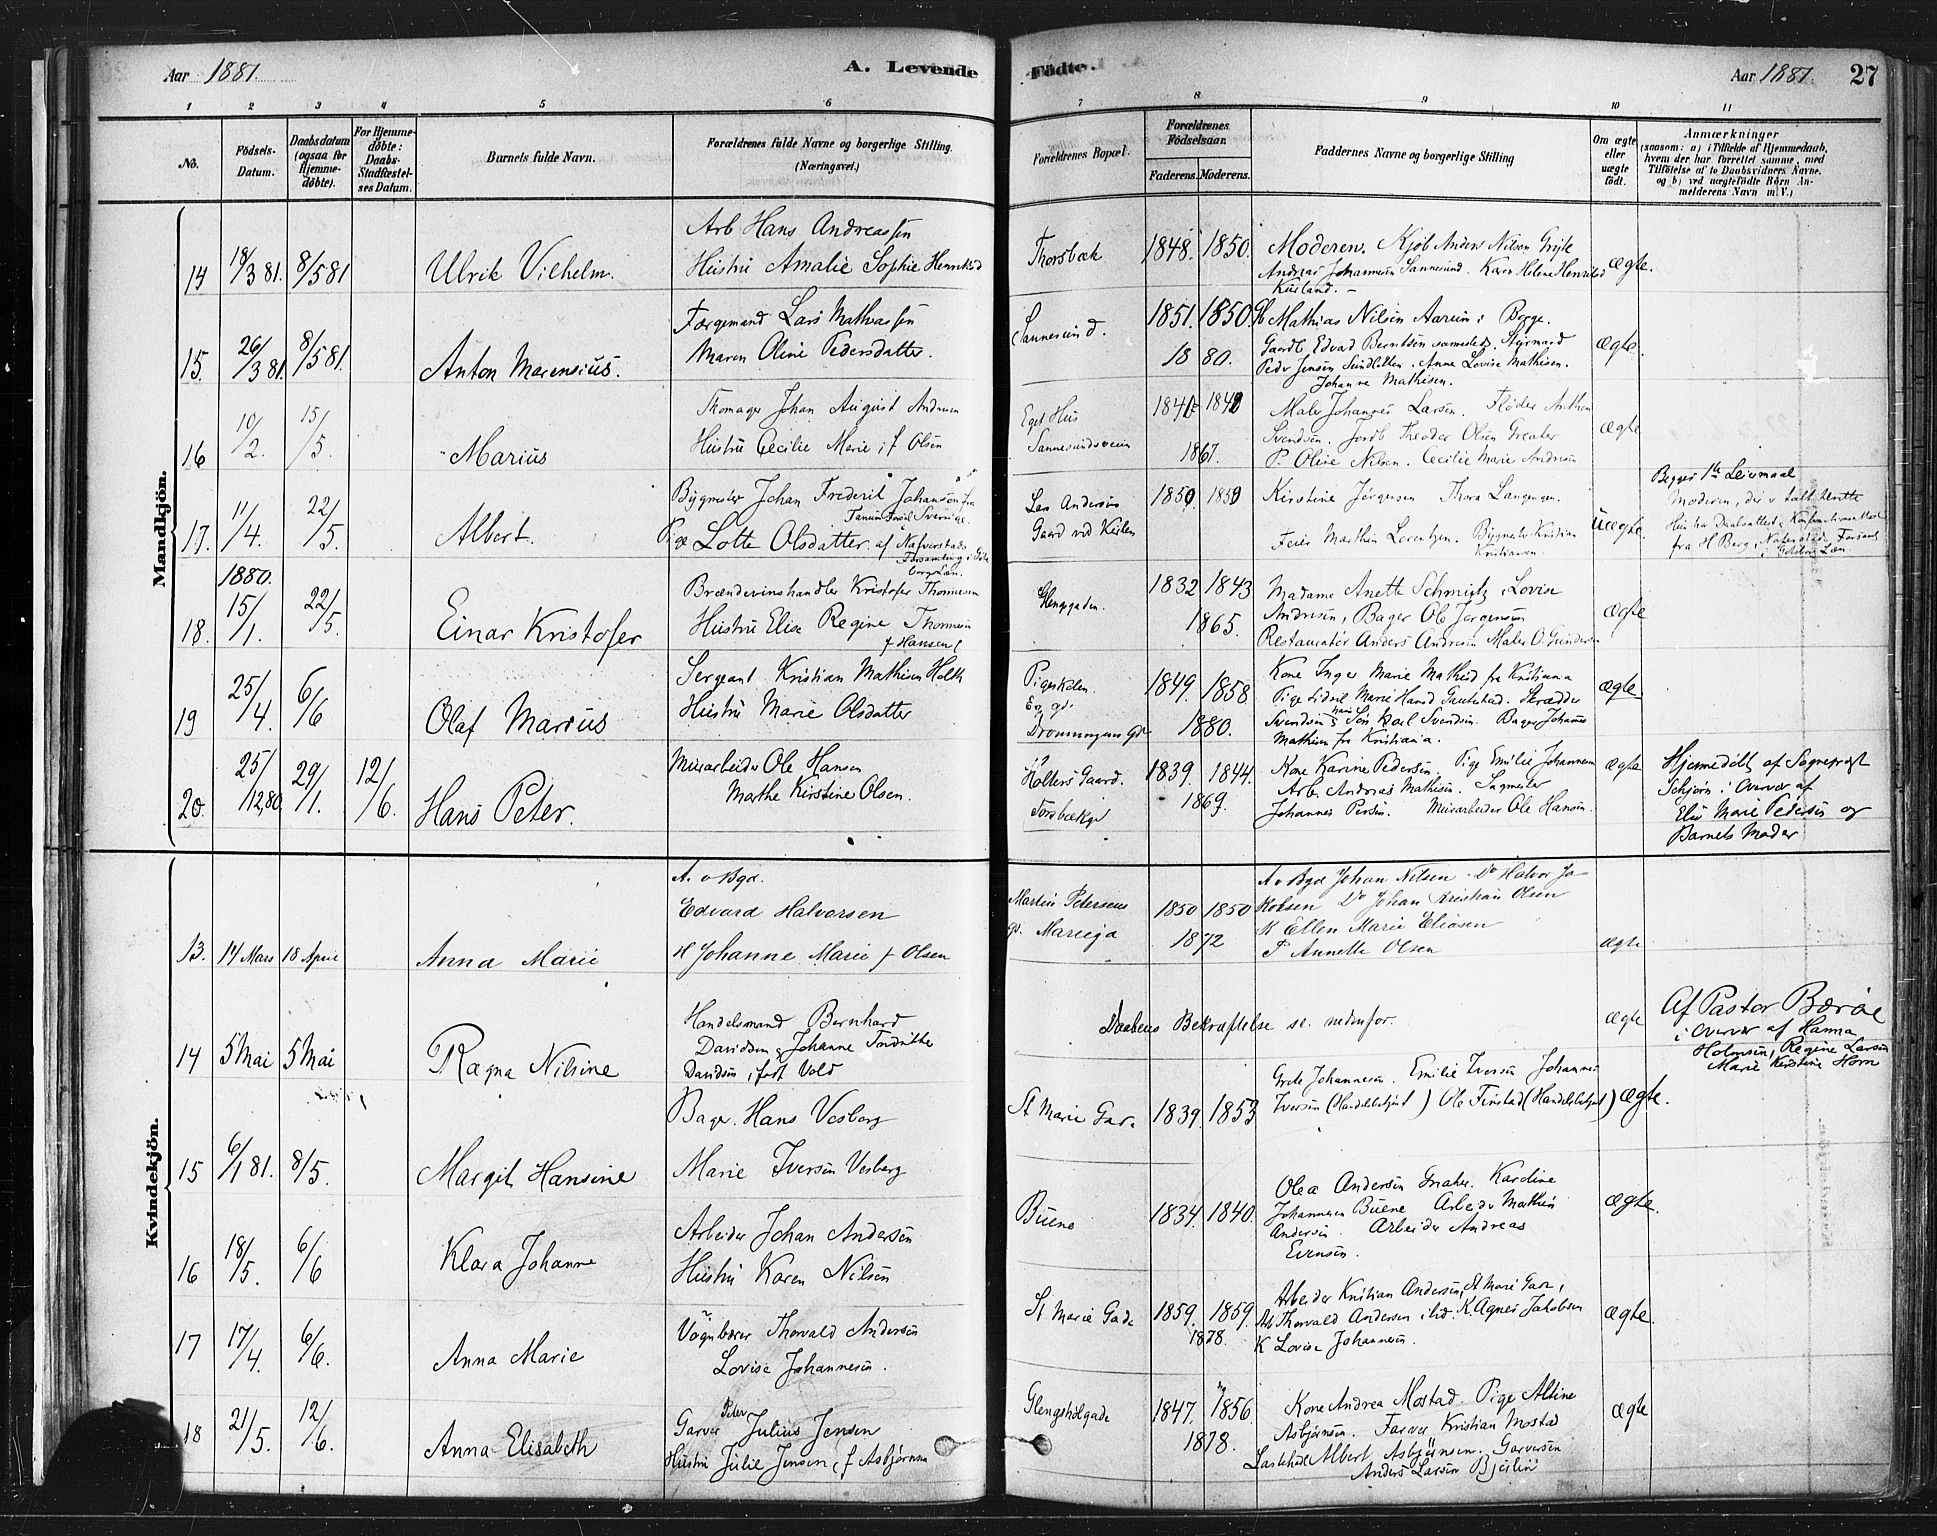 Aar 1881.
A. Levende
1 2 3 4 5 6
No.
Födsels-Datum.
Daabsdatum (ogsaa for Hjemme-döbte).
For Hjemme-döbte: Daabs-Stadfæstel-ses Datum.
Barnets fulde Navn.
Forældrenes fulde Navne og borgerlige Stilling.
(Næringsvei.)
Födte.
Aar 1881. 27
7 8 9 10 11
Forældrenes Bopæl.
Forældrenes Födselsaar.
Faderens. Moderens.
Faddernes Navne og borgerlige Stilling
Om ægte eller uægte födt.
Anmærkninger
(saasom: a) i Tilfælde af Hjemmedaab,
hvem der har forrettet samme, med
Tilföielse af to Daabsvidners Navne.
og b) ved uægtefödte Börn An-
melderens Navn m. V.)
Mandkjön.
14 18/3 81. 8/5 81 Ulrik Vilhelm.
Arb Hans Andreassen
Hustru Amalie Sophie
Thorsbæk 1848. 1850.
Moderen. Kjöb Anders Nilsen
Andreas Johannesen Sannesund. Karen Helene
ægte.
15. 26/3 81. 8/5 81 Anton Marensius.
Færgemand Lars Mathiassen
Maren Oline Pedersdatter.
Sannesund. 1851. 1850.
1880.
Mathias Nilsen i Borge.
Gaardb Edvad Berntsen Styrmand
Peder Jensen Anna Lovise Mathisen.
Johanne Mathisen.
ægte.
16 10/2. 15/5. Marius
Johan August Andersen
Hustru Cecilie Marie, f Olsen
Eget Hus
Sannesundsveien
1867.
Maler Johannes Larsen. Flöder Anthon
Svendsen. Jordb Theodor Olsen Greaker
P. Oline Nilsen. Cecilie Marie Andersen
ægte
17. 11/4. 22/5. Albert.
Bygmester Johan Frederik Johansen fra
Sverige.
Pige Lotte Olsdatter af Nafverstads
Lars Andersens
Gaard ved Kirken
1850 1859
Kirstine Jörgensen Thora
Feier Marthin Lorentzen. Bygmester Kristian
Kristiansen
Uægte.
Begges 1te Leiermaal
Moderen,
fra H Berg,
18. 1880. 15/1. 22/5. Einar Kristofer
Brændevinshandler Kristofer Thommesen
Hustru Elise Regine Thommesen
f Hansen
Glengsgaden. 1832 1843
1865.
Madame Anette Schmidtz, Lovise
Andresen, Bager Ole Jörgensen
Restauratör Anders Andresen Maler O. Gundersen
ægte
19 25/4. 6/6 Olaf Marius
Sergeant Kristian Mathisen Holth
Hustru Marie Olsdatter
Pigeskolen.
Dronningens Gd
1849. 1858.
1880.
Kone Inger Marie Mathisd fra Kristiania
Pige Marie Hansd Skrædder
Svendsen, hans Sön Karl Svendsen. Bager Johannes
Mathisen fra Kristiania.
ægte
20. 25/12, 80 29/1. 12/6. Hans Peter.
Murarbeider Ole Hansen
Marthe Kirstine Olsen.
Holters Gaard.
1839. 1844.
1869.
Kone Karine Pedersen Pige Emilie Johannesen
Arb. Andreas Mathisen. Sagmester
Johannes Murarbeider Ole Hansen.
ægte
Hjemmedöbt af Sogneprest
Schjörn i Overvær af
Elise Marie Pedersen og
Barnets Moder
Kvindekjön.
13. 14 Mars 18 April Anna Marie
A. v Bgd.
Edvard Halvorsen
H Johanne Marie f Olsen
Martin Petersens
gd. 1850 1850
1872
A v Bgd Johan Nilsen Do Halvor Ja
kobsen Do Johan Kristian Olsen
K Ellen Marie Eliasen
P Annette Olsen
ægte
14 5 Mai 5 Mai Ragna Nilsine
Handelsmand Bernhard
Davidsen & Johanne
Davidsen, födt Vold
Daabens Bekræftelse se. nedenfor.
ægte
Af Pastor Bæröe
i Overvær af Hanna
Holmsen, Regine Larsen
Marie Kirstine Horn
15 6/1 81. 8/5. Margit Hansine
Bager. Hans Vesberg
Marie Iversen Vesberg
St Marie Gade 1839. 1853
Grete Johannesen. Emilie Iversen Johannes
Iversen (Handelsbetjent) Ole Finstad (Handelsbetjent)
ægte.
16 18/5. 6/6 Klara Johanne
Arbeider Johan Andersen
Hustru Karen Nilsen
Buene 1834. 1840.
Olea Andersen Karoline
Johannesen Buene Arbeider Mathias
Andersen. Arbeider Andreas
Evensen.
ægte.
17 17/4. 6/6. Anna Marie
Thorvald Andersen
Lovise Johannesen.
St Marie Gade 1859. 1859.
1878.
Arbeider Kristian Andersen, St Marie Gade,
Arb Thorvald Andersen K. Agnes Jakobsen
K Lovise Johannesen.
ægte.
18 21/5. 12/6. Anna Elisabeth
Garver Peter Julius Jensen
Hustru Julie Jensen, f Asbjørnsen
Glengshölgade 1847. 1856.
1878.
Kone Andrea Mostad. Pige Altine
Asbjørnsen. Farver Kristian Mostad
Albert Asbjørnsen. Garversvend
Anders Larsen
ægte